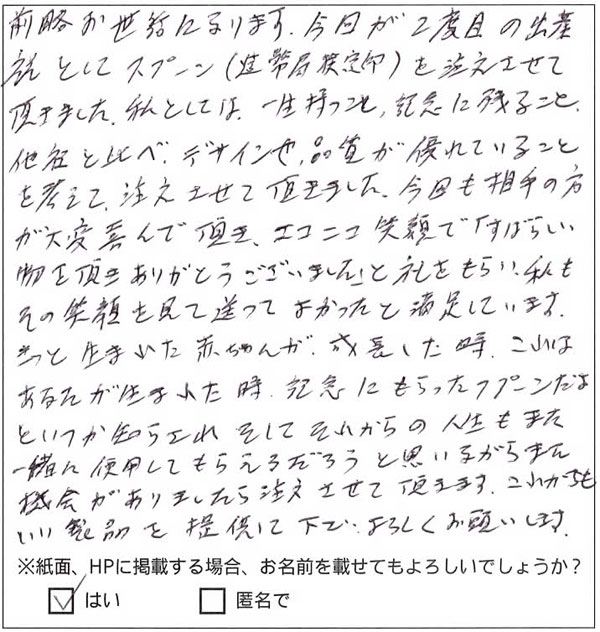 前略お世話になります。今回が2度目の出産
祝としてスプーン(造幣局検定印)を注文させて
頂きました。私としては、一生持つこと、記念に残ること、
他社と比べ、デザインや、品質が優れていること
を考えて、注文させて頂きました。今回も相手の方
が大変喜んで頂き、ニコニコ笑顔で「すばらしい
物を頂きありがとうございました」と礼をもらい、私も
その笑顔を見て送ってよかったと満足しています。
きっと生まれた赤ちゃんが、成長した時、これは
あなたが生まれた時、記念にもらったスプーンだよ
といつか知らされ そしてそれからの人生もまた
一緒に使用してもらえるだろうと思いながらまた
機会がありましたら注文させて頂きます。これからも
いい製品を提供して下さい。よろしくお願いします。
※紙面、HPに掲載する場合、お名前を載せてもよろしいでしょうか?
はい 匿名で